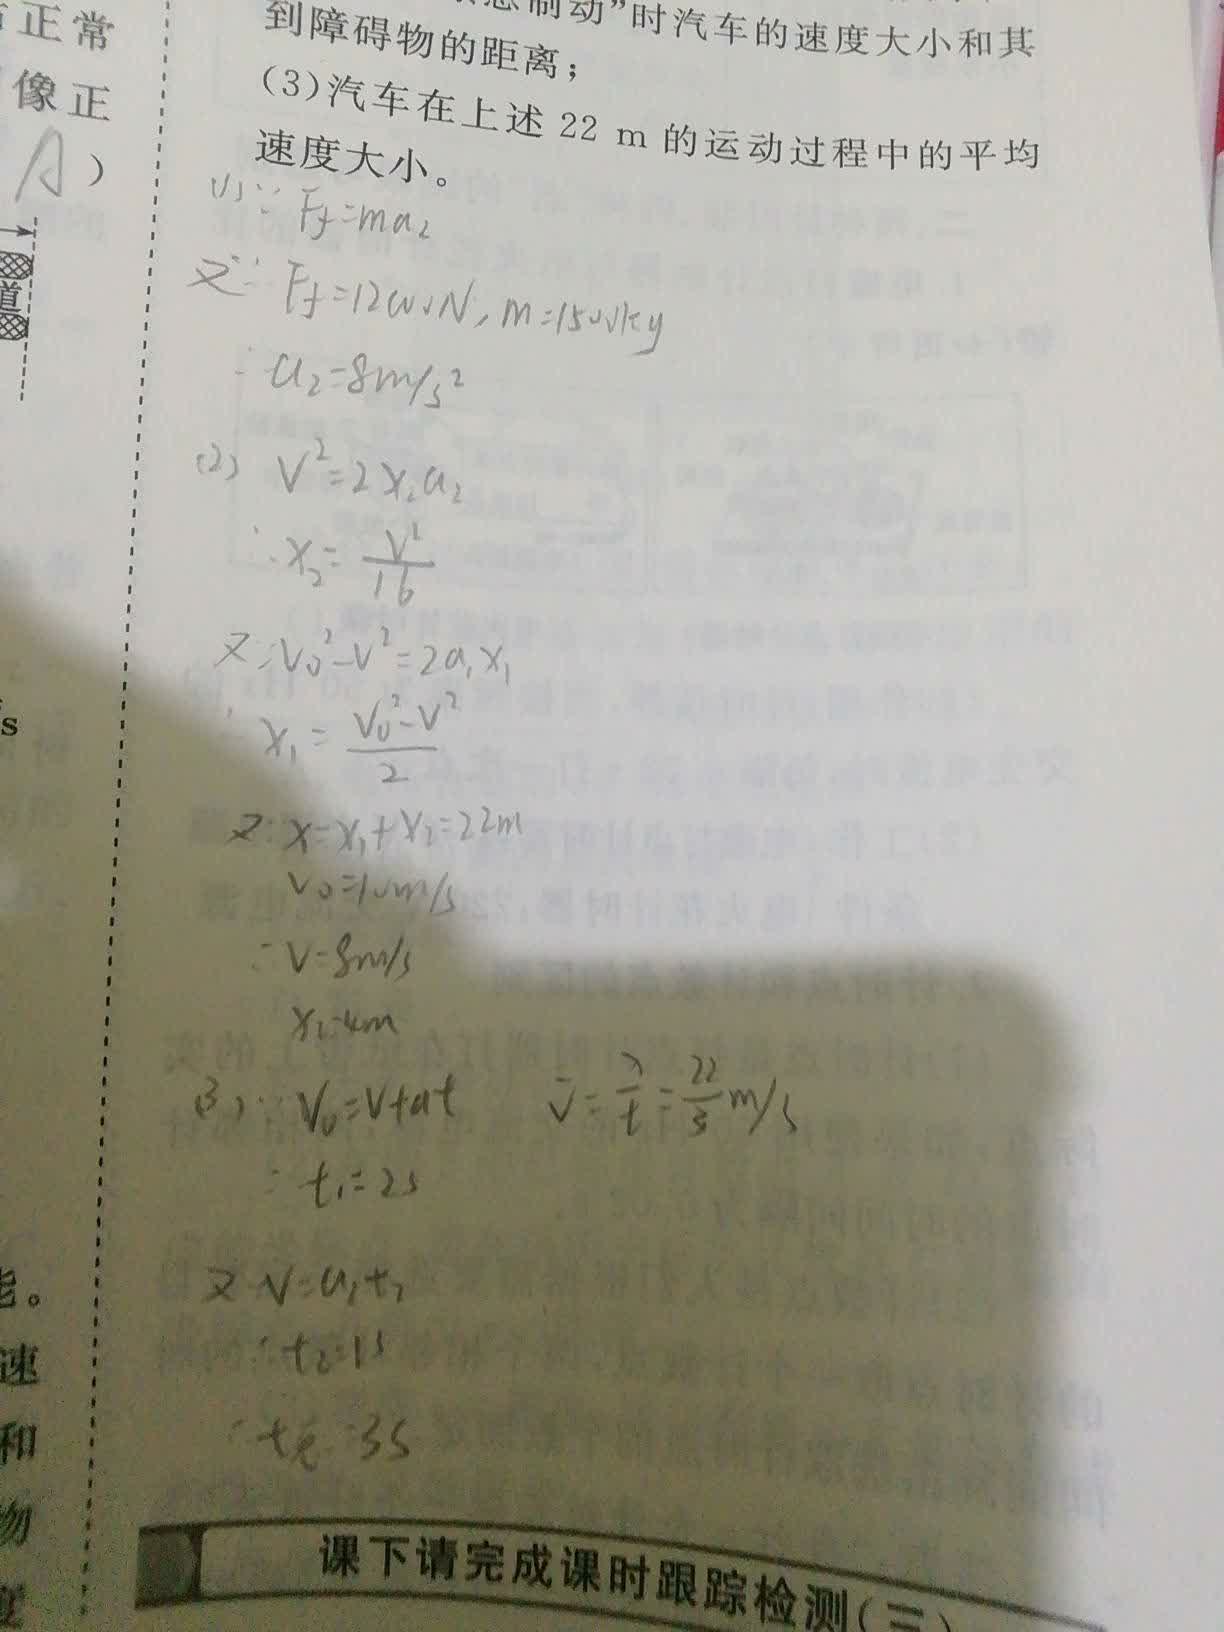 正常
像正
A )
道
s
能。
速
和
物
急制动”时汽车的速度大小和其
到障碍物的距离；
(3)汽车在上述 22 m 的运动过程中的平均
速度大小。
(1)∵ Ff=ma₂
又∵ Ff=12000N, m=1500kg
∴ a₂=8m/s²
(2) V²=2x₂a₂
∴x₂=V²/16
又∵V₀²-V²=2a₁x₁
∴ x₁=(V₀²-V²)/2
又∵x=x₁+x₂=22m
V₀=10m/s
∴V=8m/s
x₂=4m
(3)∵V₀=V+at V̄=x/t=22/3 m/s
∴t₁=2s
又V=a₂t₂
∴t₂=1s
∴t总=3s
课下请完成课时跟踪检测(三)